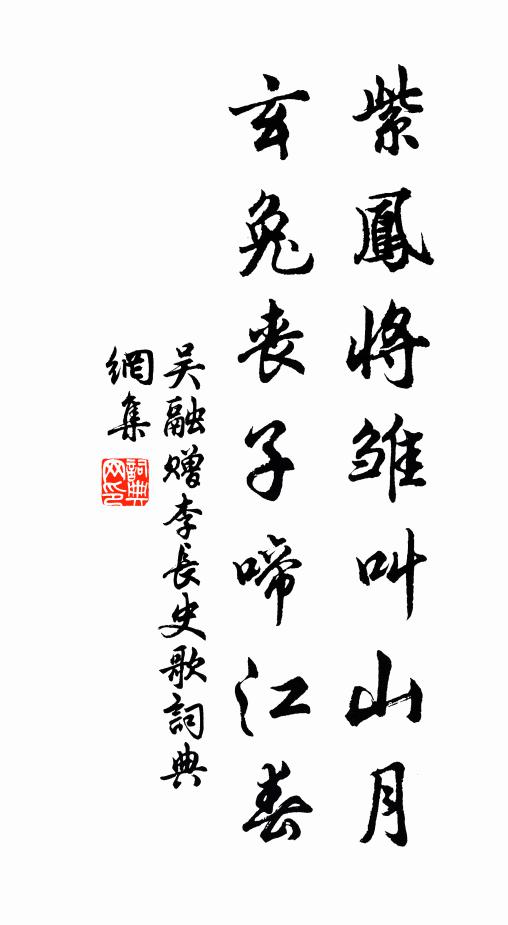 紫鳳將雛叫山月
玄兔喪子啼江春
吴融贈李長史歌詞典
網集
詞典
网印